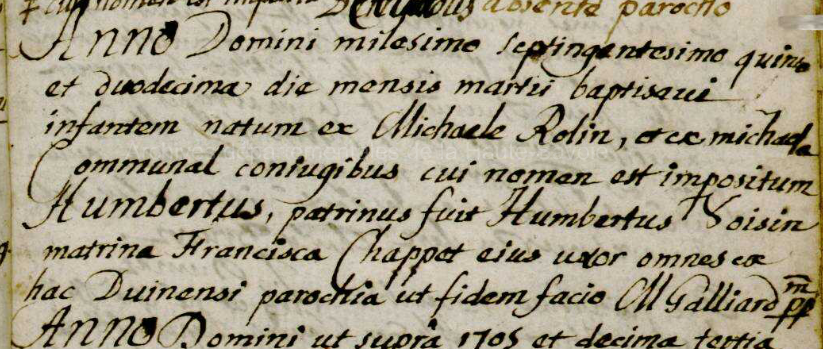 cui nomen est absente parocho
ANNO Domini milesimo septingentesimo quinto
et duodecima die mensis martii baptisavi
infantem natum ex Michaele Rolin, et ex michaela
Communal coniugibus cui nomen est impositum
Humbertus, patrinus fuit Humbertus Voisin
matrina Francisca Chappot eius uxor omnes ex
hac Duinensi parochia ut fidem facio M Galliard
ANNO Domini ut suprà 1705 et decima tertia